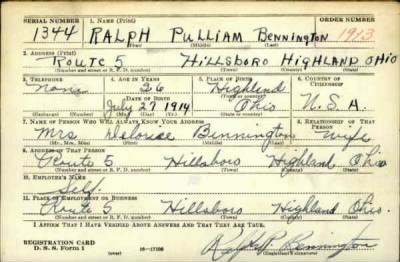 SERIAL NUMBER 1. NAME (Print) ORDER NUMBER
1344 RALPH PULLIAM BENNINGTON 1913
(First) (Middle) (Last)
2. ADDRESS (Print)
ROUTE 5 HILLSBORO HIGHLAND OHIO
(Number and street or R. F. D. number) (Town) (County) (State)
3. TELEPHONE 4. AGE IN YEARS 5. PLACE OF BIRTH 6. COUNTRY OF CITIZENSHIP
None 26 Highland
DATE OF BIRTH
July 27 1914 Ohio U.S.A.
(Mo.) (Day) (Yr.) (State or country)
7. NAME OF PERSON WHO WILL ALWAYS KNOW YOUR ADDRESS 8. RELATIONSHIP OF THAT PERSON
Mrs Bennington wife
(Mr., Mrs., Miss) (First) (Middle) (Last)
9. ADDRESS OF THAT PERSON
Route 5 Hillsboro Highland Ohio
(Number and street or R. F. D. number) (Town) (County) (State)
10. EMPLOYER'S NAME
Self.
11. PLACE OF EMPLOYMENT OR BUSINESS
Route 5 Hillsboro Highland Ohio.
(Number and street or R. F. D. number) (Town) (County) (State)
I AFFIRM THAT I HAVE VERIFIED ABOVE ANSWERS AND THAT THEY ARE TRUE.
REGISTRATION CARD
D. S. S. Form 1 16-17105 Ralph P. Bennington